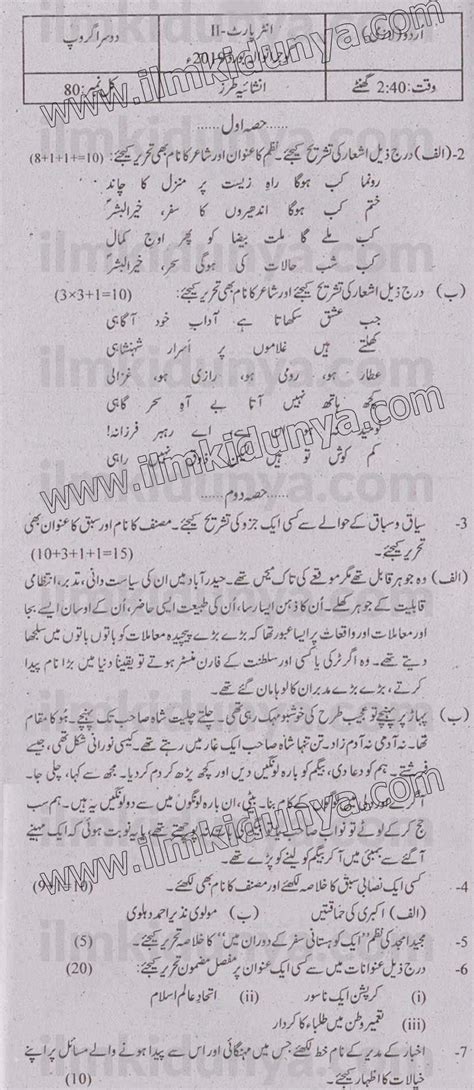 اردو (لازمی) انٹر پارٹ-II دوسرا گروپ
2019ء
وقت: 2:40 گھنٹے انشائیہ طرز کل نمبر: 80
حصہ اول
2- (الف) درج ذیل اشعار کی تشریح کیجئے۔ نظم کا عنوان اور شاعر کا نام بھی تحریر کیجئے: (8+1+1=10)
رونما کب ہوگا راہِ زیست پر منزل کا چاند
ختم کب ہوگا اندھیروں کا سفر، خیرالبشرؐ
کب ملے گا ملت بیضا کو پھر اوج کمال
کب شب حالات کی ہوگی سحر، خیرالبشرؐ
(ب) درج ذیل اشعار کی تشریح کیجئے اور شاعر کا نام بھی تحریر کیجئے: (3×3+1=10)
جب عشق سکھاتا ہے آداب خود آگاہی
کھلتے ہیں غلاموں پر اسرار شہنشاہی
عطار ہو، رومی ہو، رازی ہو، غزالی ہو
کچھ ہاتھ نہیں آتا بے آہِ سحر گاہی
نہ ہو ان سے اے رہبر فرزانہ!
کم کوش تو ہیں لیکن بے ذوق نہیں راہی
حصہ دوم
3- سیاق و سباق کے حوالے سے کسی ایک جزو کی تشریح کیجئے۔ مصنف کا نام اور سبق کا عنوان بھی
تحریر کیجئے۔ (10+3+1+1=15)
(الف) وہ جوہر قابل تھے مگر موقعے کی تاک میں تھے۔ حیدرآباد میں ان کی سیاست دانی، مدبر، انتظامی
قابلیت کے جوہر کھلے۔ اُن کا ذہن ایسا رسا، اُن کی طبیعت ایسی حاضر، اُن کے اوسان ایسے بجا
اور معاملات اور واقعات پر ایسا عبور تھا کہ بڑے بڑے پیچیدہ معاملات کو باتوں باتوں میں سلجھا
دیتے تھے۔ وہ اگر ٹرکی یا کسی اور سلطنت کے فارن منسٹر ہوتے تو یقیناً دنیا میں بڑا نام پیدا
کرتے، بڑے بڑے مدبران کا لوہا مان گئے تھے۔
(ب) پہاڑ پر پہنچے تو عجیب طرح کی خوشبو مہک رہی تھی۔ چلتے چلتے شاہ صاحب تک پہنچے۔ ہُو کا مقام
تھا۔ نہ آدمی نہ آدم زاد۔ تن تنہا شاہ صاحب ایک غار میں رہتے تھے۔ کیسی نورانی شکل تھی، جیسے
فرشتے۔ ہم کو دعا دی، بیگم کو بارہ لونگیں دیں اور کچھ پڑھ کر دم کر دیا۔ مجھ سے کہا، چلی جا۔
آگرے اور دلی میں لوگوں کے کام بنا۔ بیٹی، ان بارہ لونگوں میں سے دو لونگیں یہ ہیں۔ ہم سب
حج کر کے لوٹے تو نواب صاحب نہ پوچھتے تھے، یا یہ نوبت ہوئی کہ ایک مہینے
آگے سے بمبئی میں آ کر بیگم کو لینے کو پڑے تھے۔
4- کسی ایک نصابی سبق کا خلاصہ لکھئے اور مصنف کا نام بھی لکھئے۔ (9+1=10)
(الف) اکبری کی حماقتیں (ب) مولوی نذیر احمد دہلوی
5- مجید امجد کی نظم "ایک کوہستانی سفر کے دوران میں" کا خلاصہ تحریر کیجئے۔ (5)
6- درج ذیل عنوانات میں سے کسی ایک عنوان پر مفصل مضمون تحریر کیجئے: (20)
(i) کرپشن ایک ناسور (ii) اتحادِ عالم اسلام
(iii) تعمیر وطن میں طلباء کا کردار
7- اخبار کے مدیر کے نام خط لکھئے جس میں مہنگائی اور اس سے پیدا ہونے والے مسائل پر اپنے
خیالات کا اظہار کیجئے۔ (10)
www.ilmkidunya.com